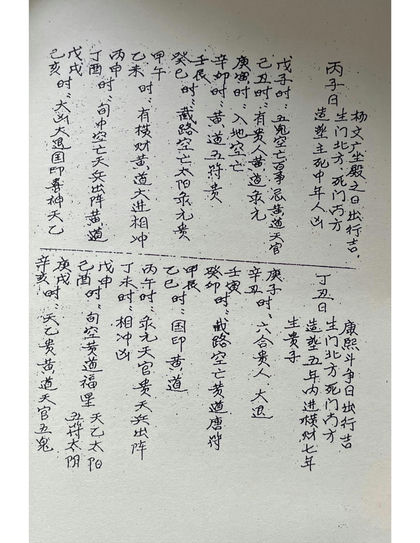 丙子日
杨文广坐殿之日出行吉
生门北方 死门丙方
造塟主死中年人凶
戊子时:五鬼空亡百忌黄道天官
己丑时:有贵人黄道乘元
庚寅时:入地空亡
辛卯时:黄道五符贵
壬辰
癸巳时:截路空亡太阳乘元贵
甲午
乙未时:有横财黄道大进相冲
丙申时:
丁酉时:旬中空亡天兵出阵黄道
戊戌时:
己亥时:大凶大退国印喜神天乙
丁丑日
康熙斗争日出行吉
生门北方 死门丙方
造塟五年内进横财七年
生贵子
庚子时:六合贵人 大退
辛丑
壬寅
癸卯时:截路空亡黄道唐符
甲辰
乙巳时:国印黄道
丙午时:乘元天官贵天兵出阵
丁未时:相冲凶
戊申
己酉时:旬空黄道福星 天乙太阳
庚戌时: 五符太阴
辛亥时:天乙贵黄道天官五鬼